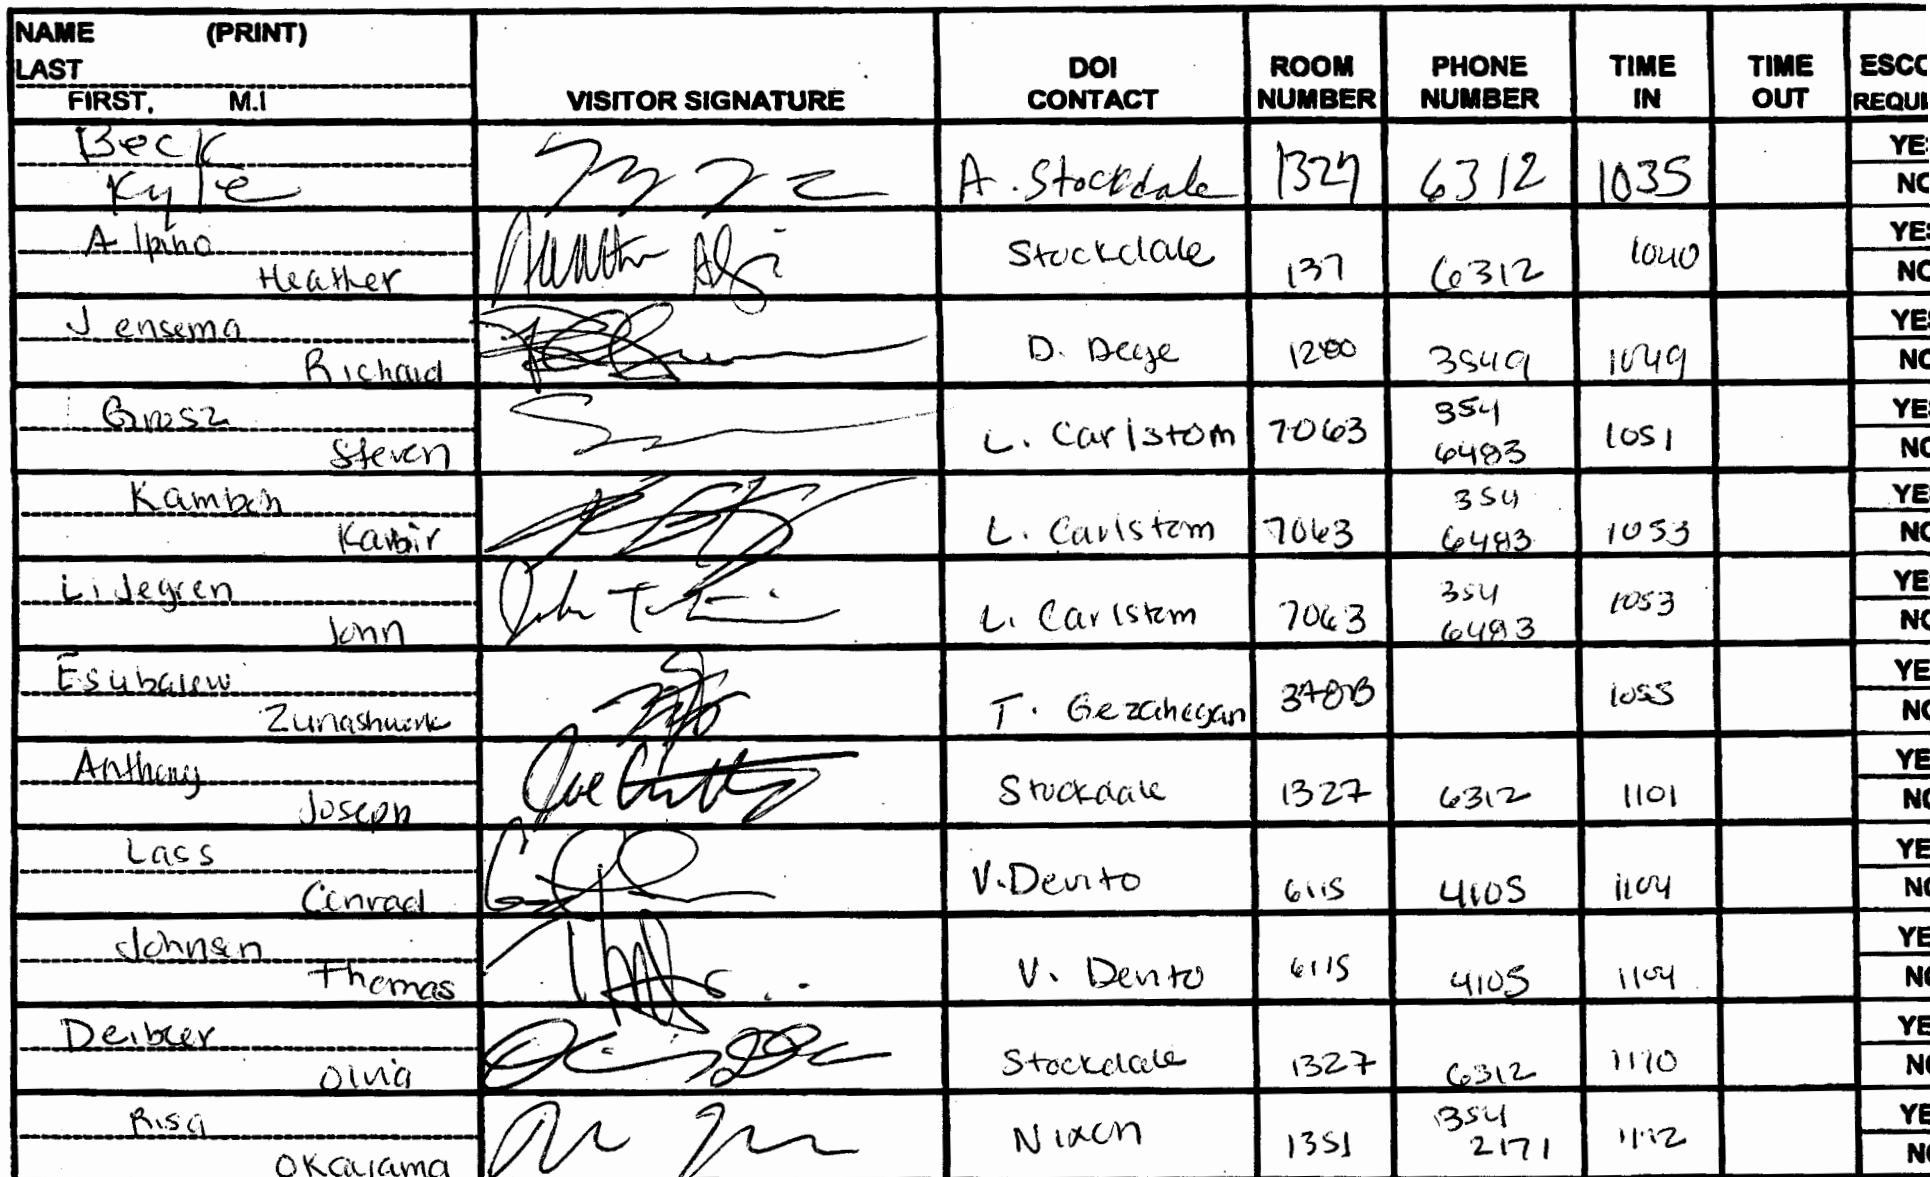 NAME (PRINT)
LAST
FIRST, M.I
VISITOR SIGNATURE
DOI
CONTACT
ROOM
NUMBER
PHONE
NUMBER
TIME
IN
TIME
OUT
ESCO
REQUI
Beck
Kyle
A. Stockdale 1327 6312 1035
YES
NO
Alpino
Heather
Stockdale 137 6312 1040
YES
NO
Jensema
Richard
D. Dege 1280 3549 1049
YES
NO
Grosz
Steven
L. Carlstom 7063 354
6493 1051
YES
NO
Kabir
L. Carlstom 7063 354
6493 1053
YES
NO
Liljegren
John
John
L. Carlstom 7063 354
6493 1053
YES
NO
Esubalew
T. Gezahegan 1055
YES
NO
Anthony
Joseph
Joe
Stockdale 1327 6312 1101
YE
NO
Lass
Conrad
V. Devito 6115 4105 1104
YE
NO
Johnson
Thomas
V. Devito 6115 4105 1104
YE
NO
Deibler
Olivia
Stockdale 1327 6312 1110
YE
NO
Risa
Okajama
Nixon 1351 354
2171 1112
YE
NO